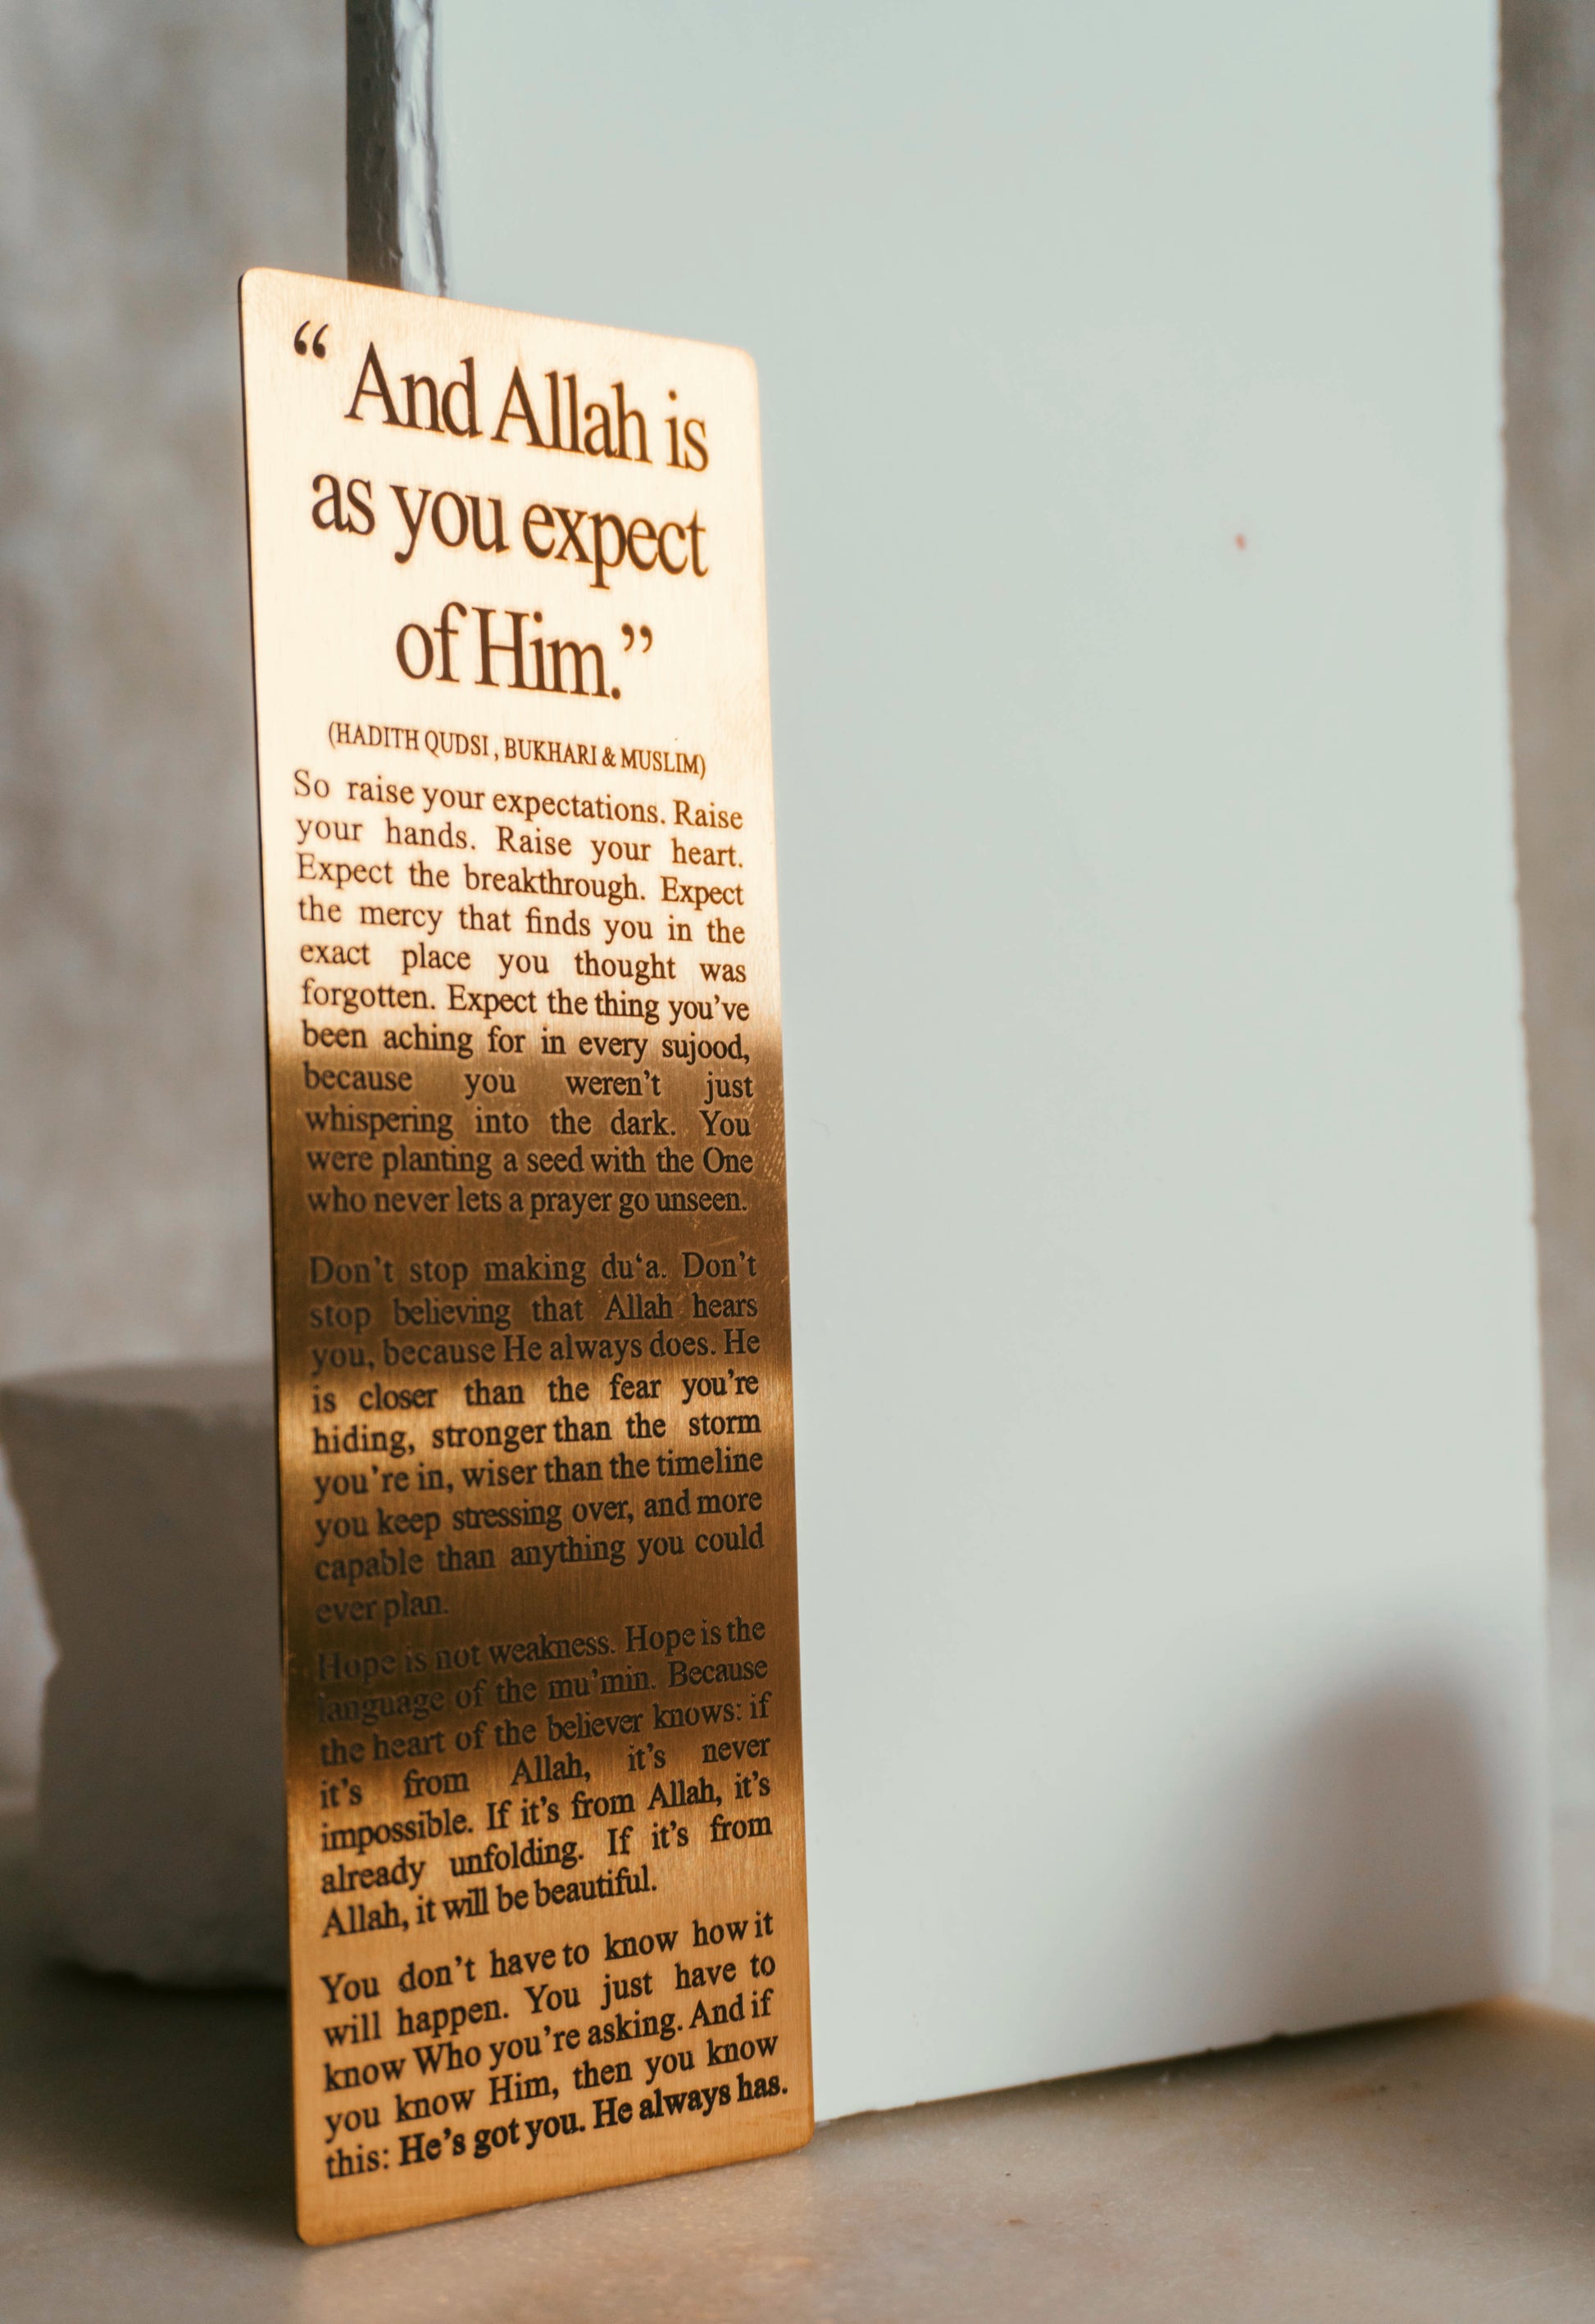 “ And Allah is
as you expect
of Him.”
(HADITH QUDSI , BUKHARI & MUSLIM)
So raise your expectations. Raise
your hands. Raise your heart.
Expect the breakthrough. Expect
the mercy that finds you in the
exact place you thought was
forgotten. Expect the thing you’ve
been aching for in every sujood,
because you weren’t just
whispering into the dark. You
were planting a seed with the One
who never lets a prayer go unseen.
Don’t stop making du‘a. Don’t
stop believing that Allah hears
you, because He always does. He
is closer than the fear you’re
hiding, stronger than the storm
you’re in, wiser than the timeline
you keep stressing over, and more
capable than anything you could
ever plan.
Hope is not weakness. Hope is the
language of the mu’min. Because
the heart of the believer knows: if
it’s from Allah, it’s never
impossible. If it’s from Allah, it’s
already unfolding. If it’s from
Allah, it will be beautiful.
You don’t have to know how it
will happen. You just have to
know Who you’re asking. And if
you know Him, then you know
this: He’s got you. He always has.